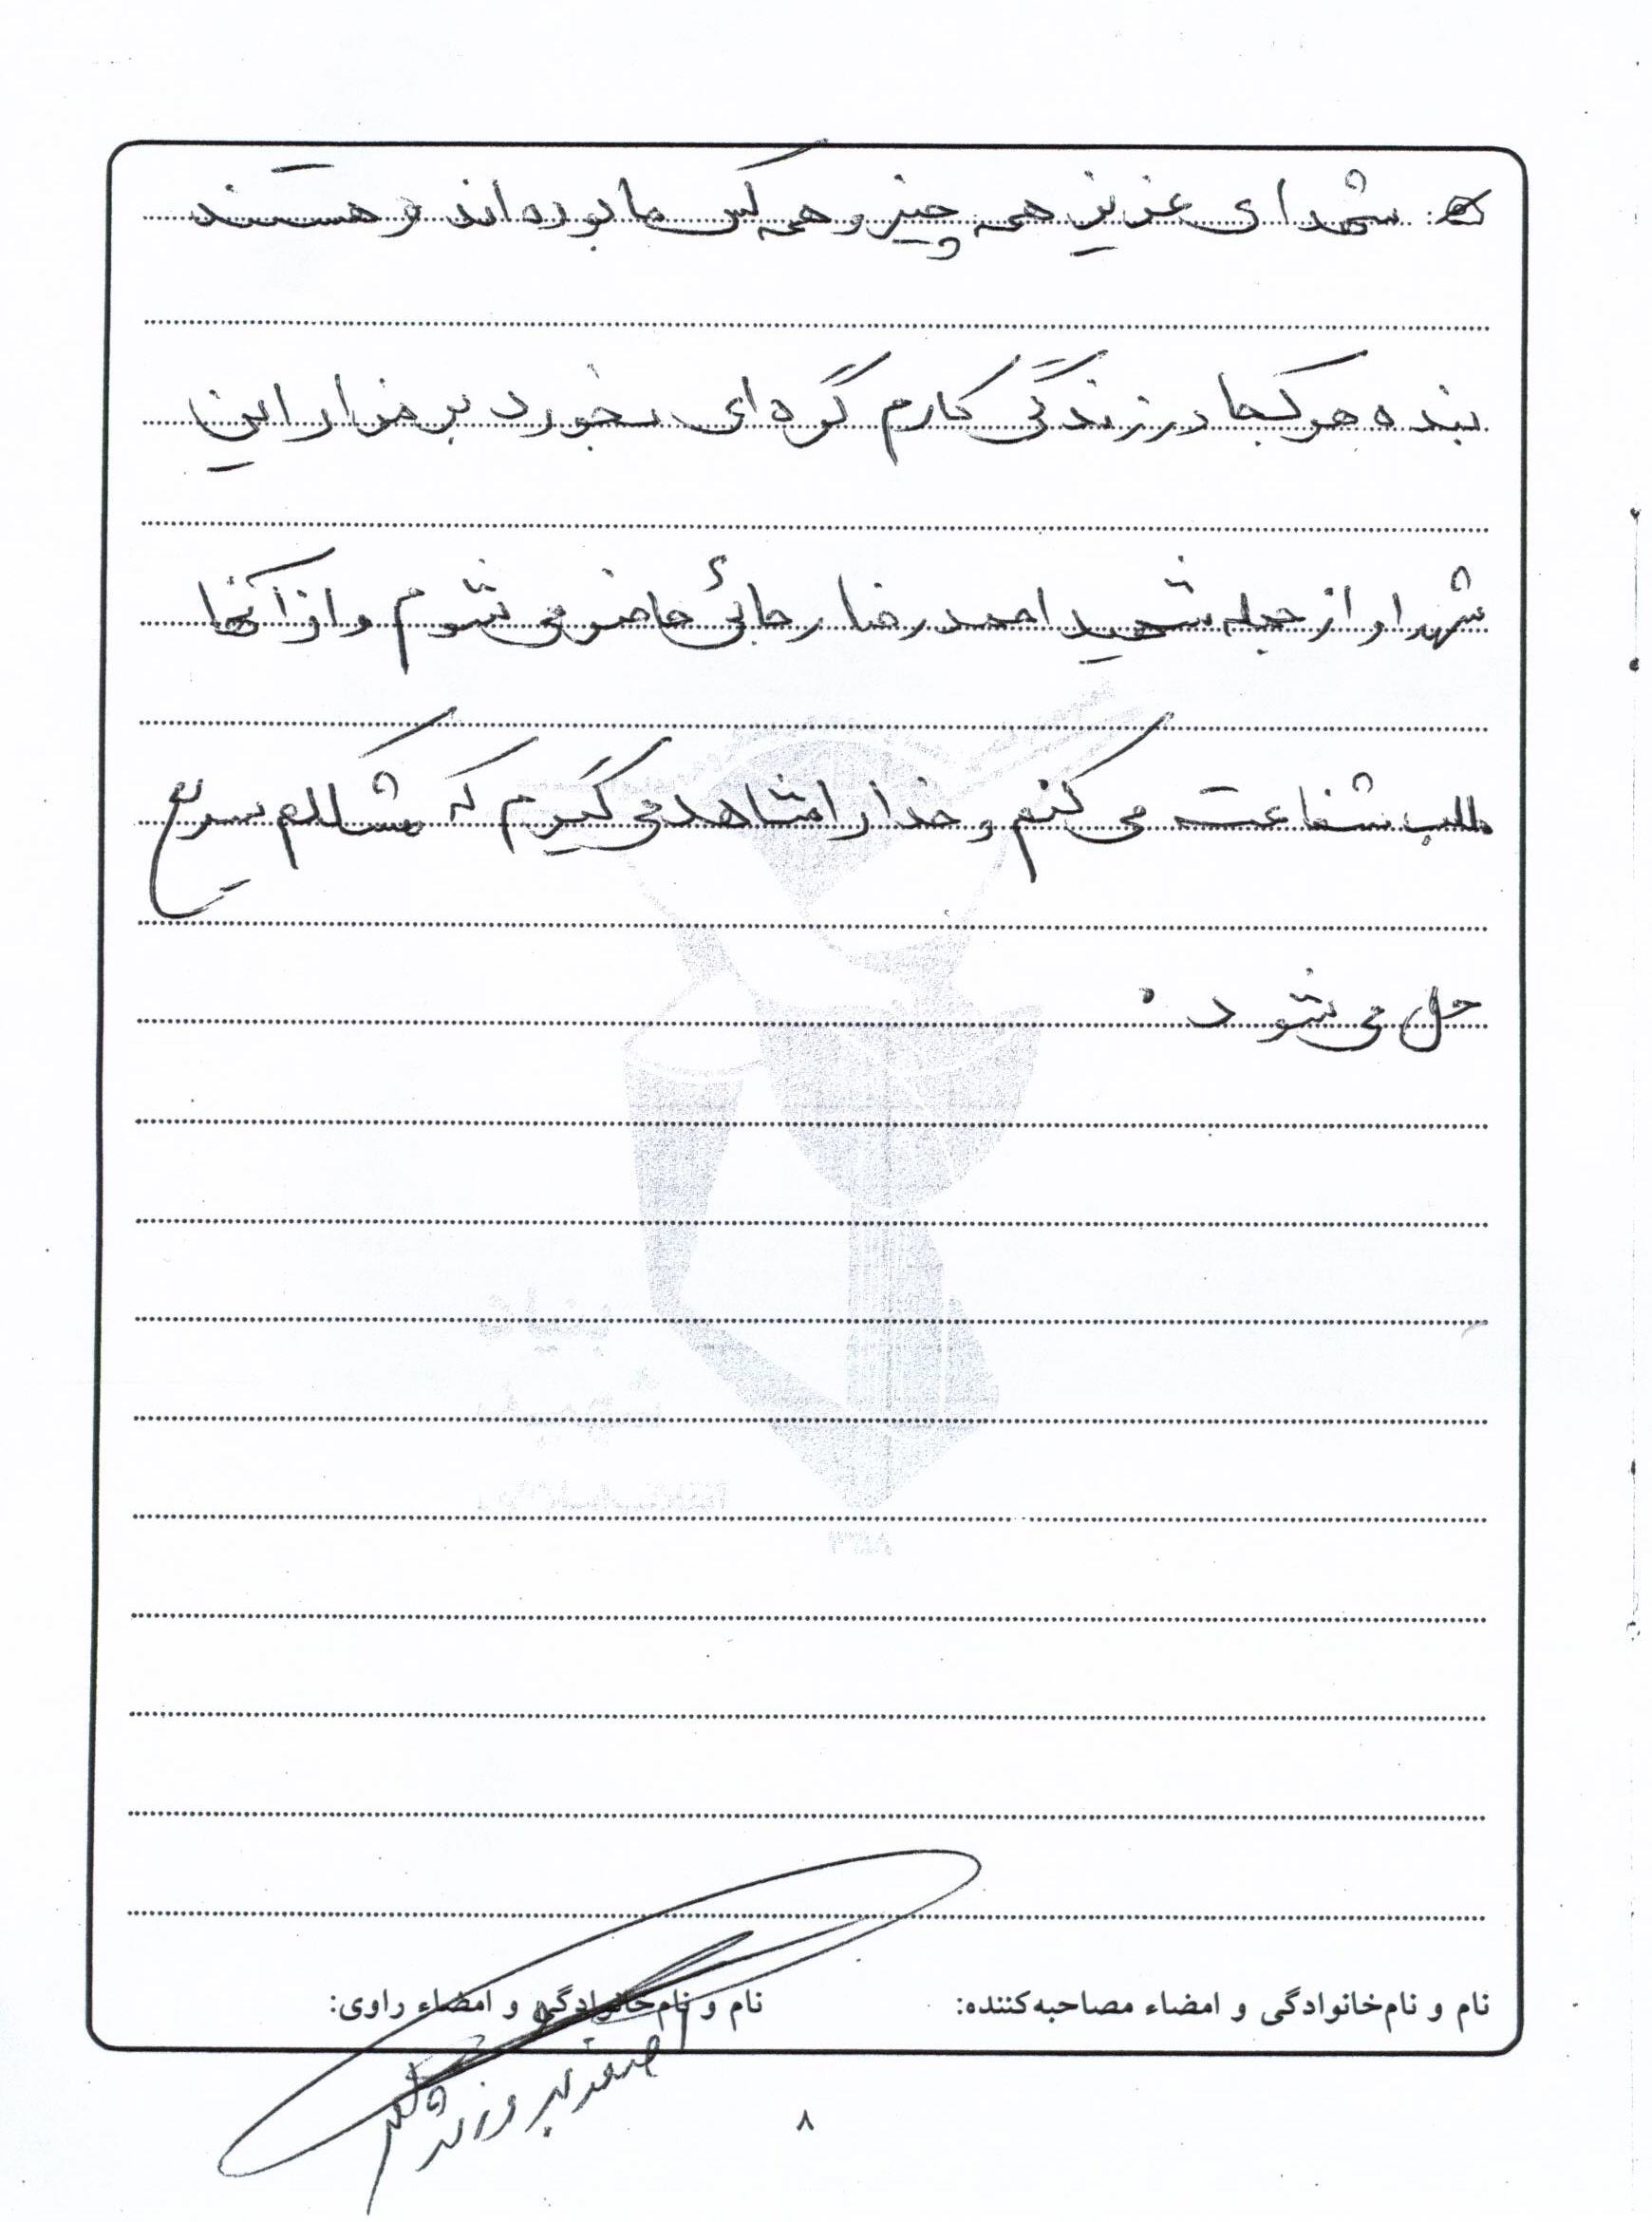 شهدای عزیز همه چیز و همه کس ما بوده اند و هستند
بنده هر کجا در زندگی کارم گره ای بخورد بر مزار این
شهدا و از جمله شهید احمدرضا رجائی حاضر می شوم و از آنها
طلب شفاعت می کنم و خدا را شاهد می گیرم که مشکلم سریع
حل می شود.
نام و نام‌خانوادگی و امضاء مصاحبه‌کننده:
نام و نام‌خانوادگی و امضاء راوی:
۸